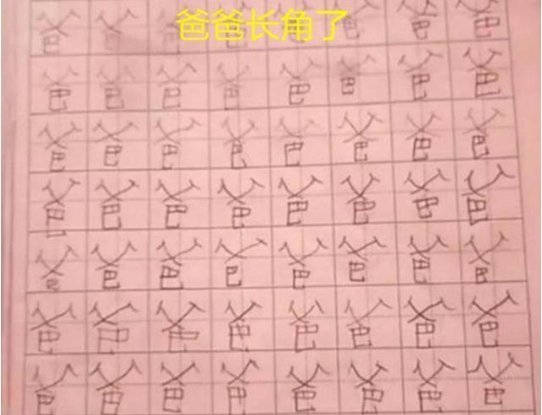 爸爸长角了
爸爸爸爸爸爸爸爸
爸爸爸爸爸爸爸爸
爸爸爸爸爸爸爸爸
爸爸爸爸爸爸爸爸
爸爸爸爸爸爸爸爸
爸爸爸爸爸爸爸爸
爸爸爸爸爸爸爸爸